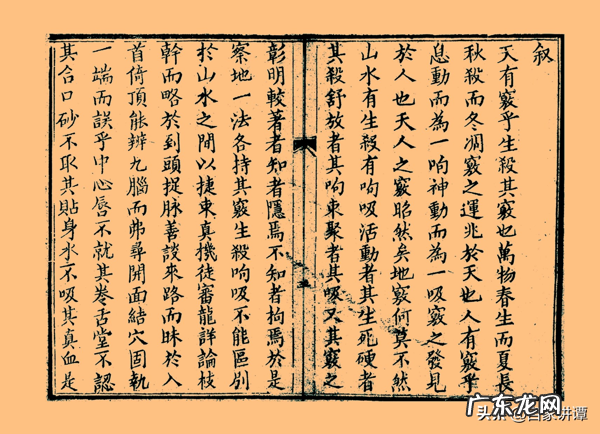 叙
天有竅乎生殺其竅也萬物春生而夏長
秋殺而冬凋竅之運兆於天也人有竅乎
息動而為一呴神動而為一吸竅之發見
於人也天人之竅昭然矣地竅何莫不然
山水有生殺有呴吸活動者其生死硬者
其殺舒放者其呴束聚者其吸又其竅之
彰明較著者知者隱焉不知者拘焉於是
察地一法各持其竅生殺呴吸不能區別
於山水之間以捷東真機徒審龍詳論枝
幹而略於到頭捉脉善談來路而昧於入
首倚頂能辨九腦而弗尋開面結穴固執
一端而誤乎中心唇不就其卷舌堂不認
其合口砂不取其貼身水不吸其真血是
广东龙网